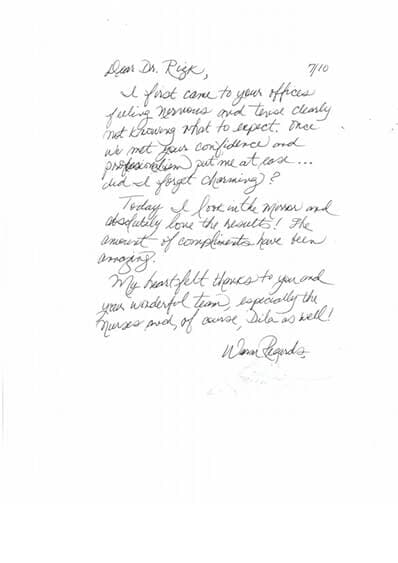 Dear Dr. Rizk, 7/10
I first came to your offices
feeling nervous and tense clearly
not knowing what to expect. Once
we met your confidence and
professionalism put me at ease...
did I forget charming?
Today I look in the mirror and
absolutely love the results! The
amount of compliments have been
amazing.
My heartfelt thanks to you and
your wonderful team, especially the
nurses and, of course, Dila as well!
Warm Regards,